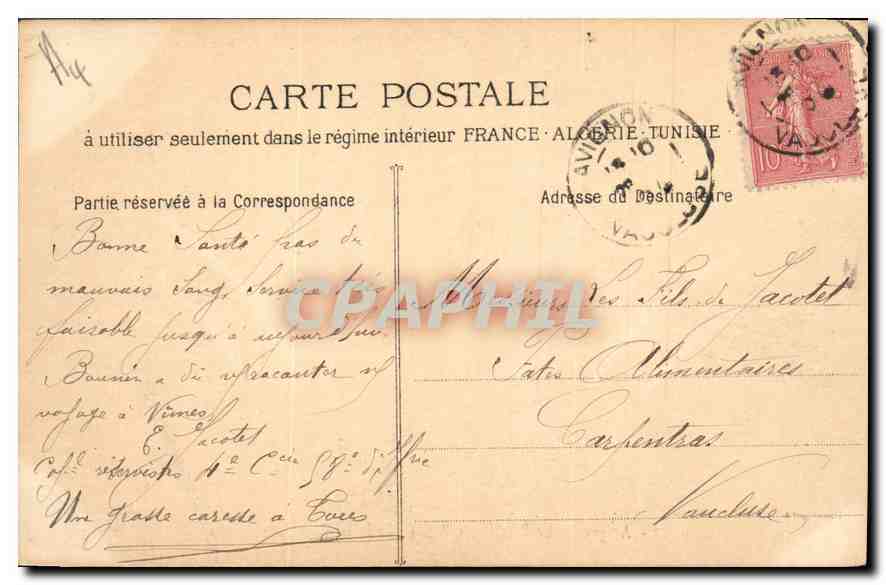 A4
CARTE POSTALE
à utiliser seulement dans le régime intérieur FRANCE · ALGÉRIE · TUNISIE
AVIGNON
VAUCLUSE
AVIGNON
VAUCLUSE
10
Partie réservée à la Correspondance
Adresse du Destinataire
Bonne Santé pas de
mauvais Sang, Service très
faisable jusqu'à
Bonnier a dû raconter
voyage à Nîmes
E. Jacotet
réserviste 4e Cie 58e
Une grosse caresse à Tous
Messieurs Les Fils de Jacotet
Pates Alimentaires
Carpentras
Vaucluse
CPAPHIL